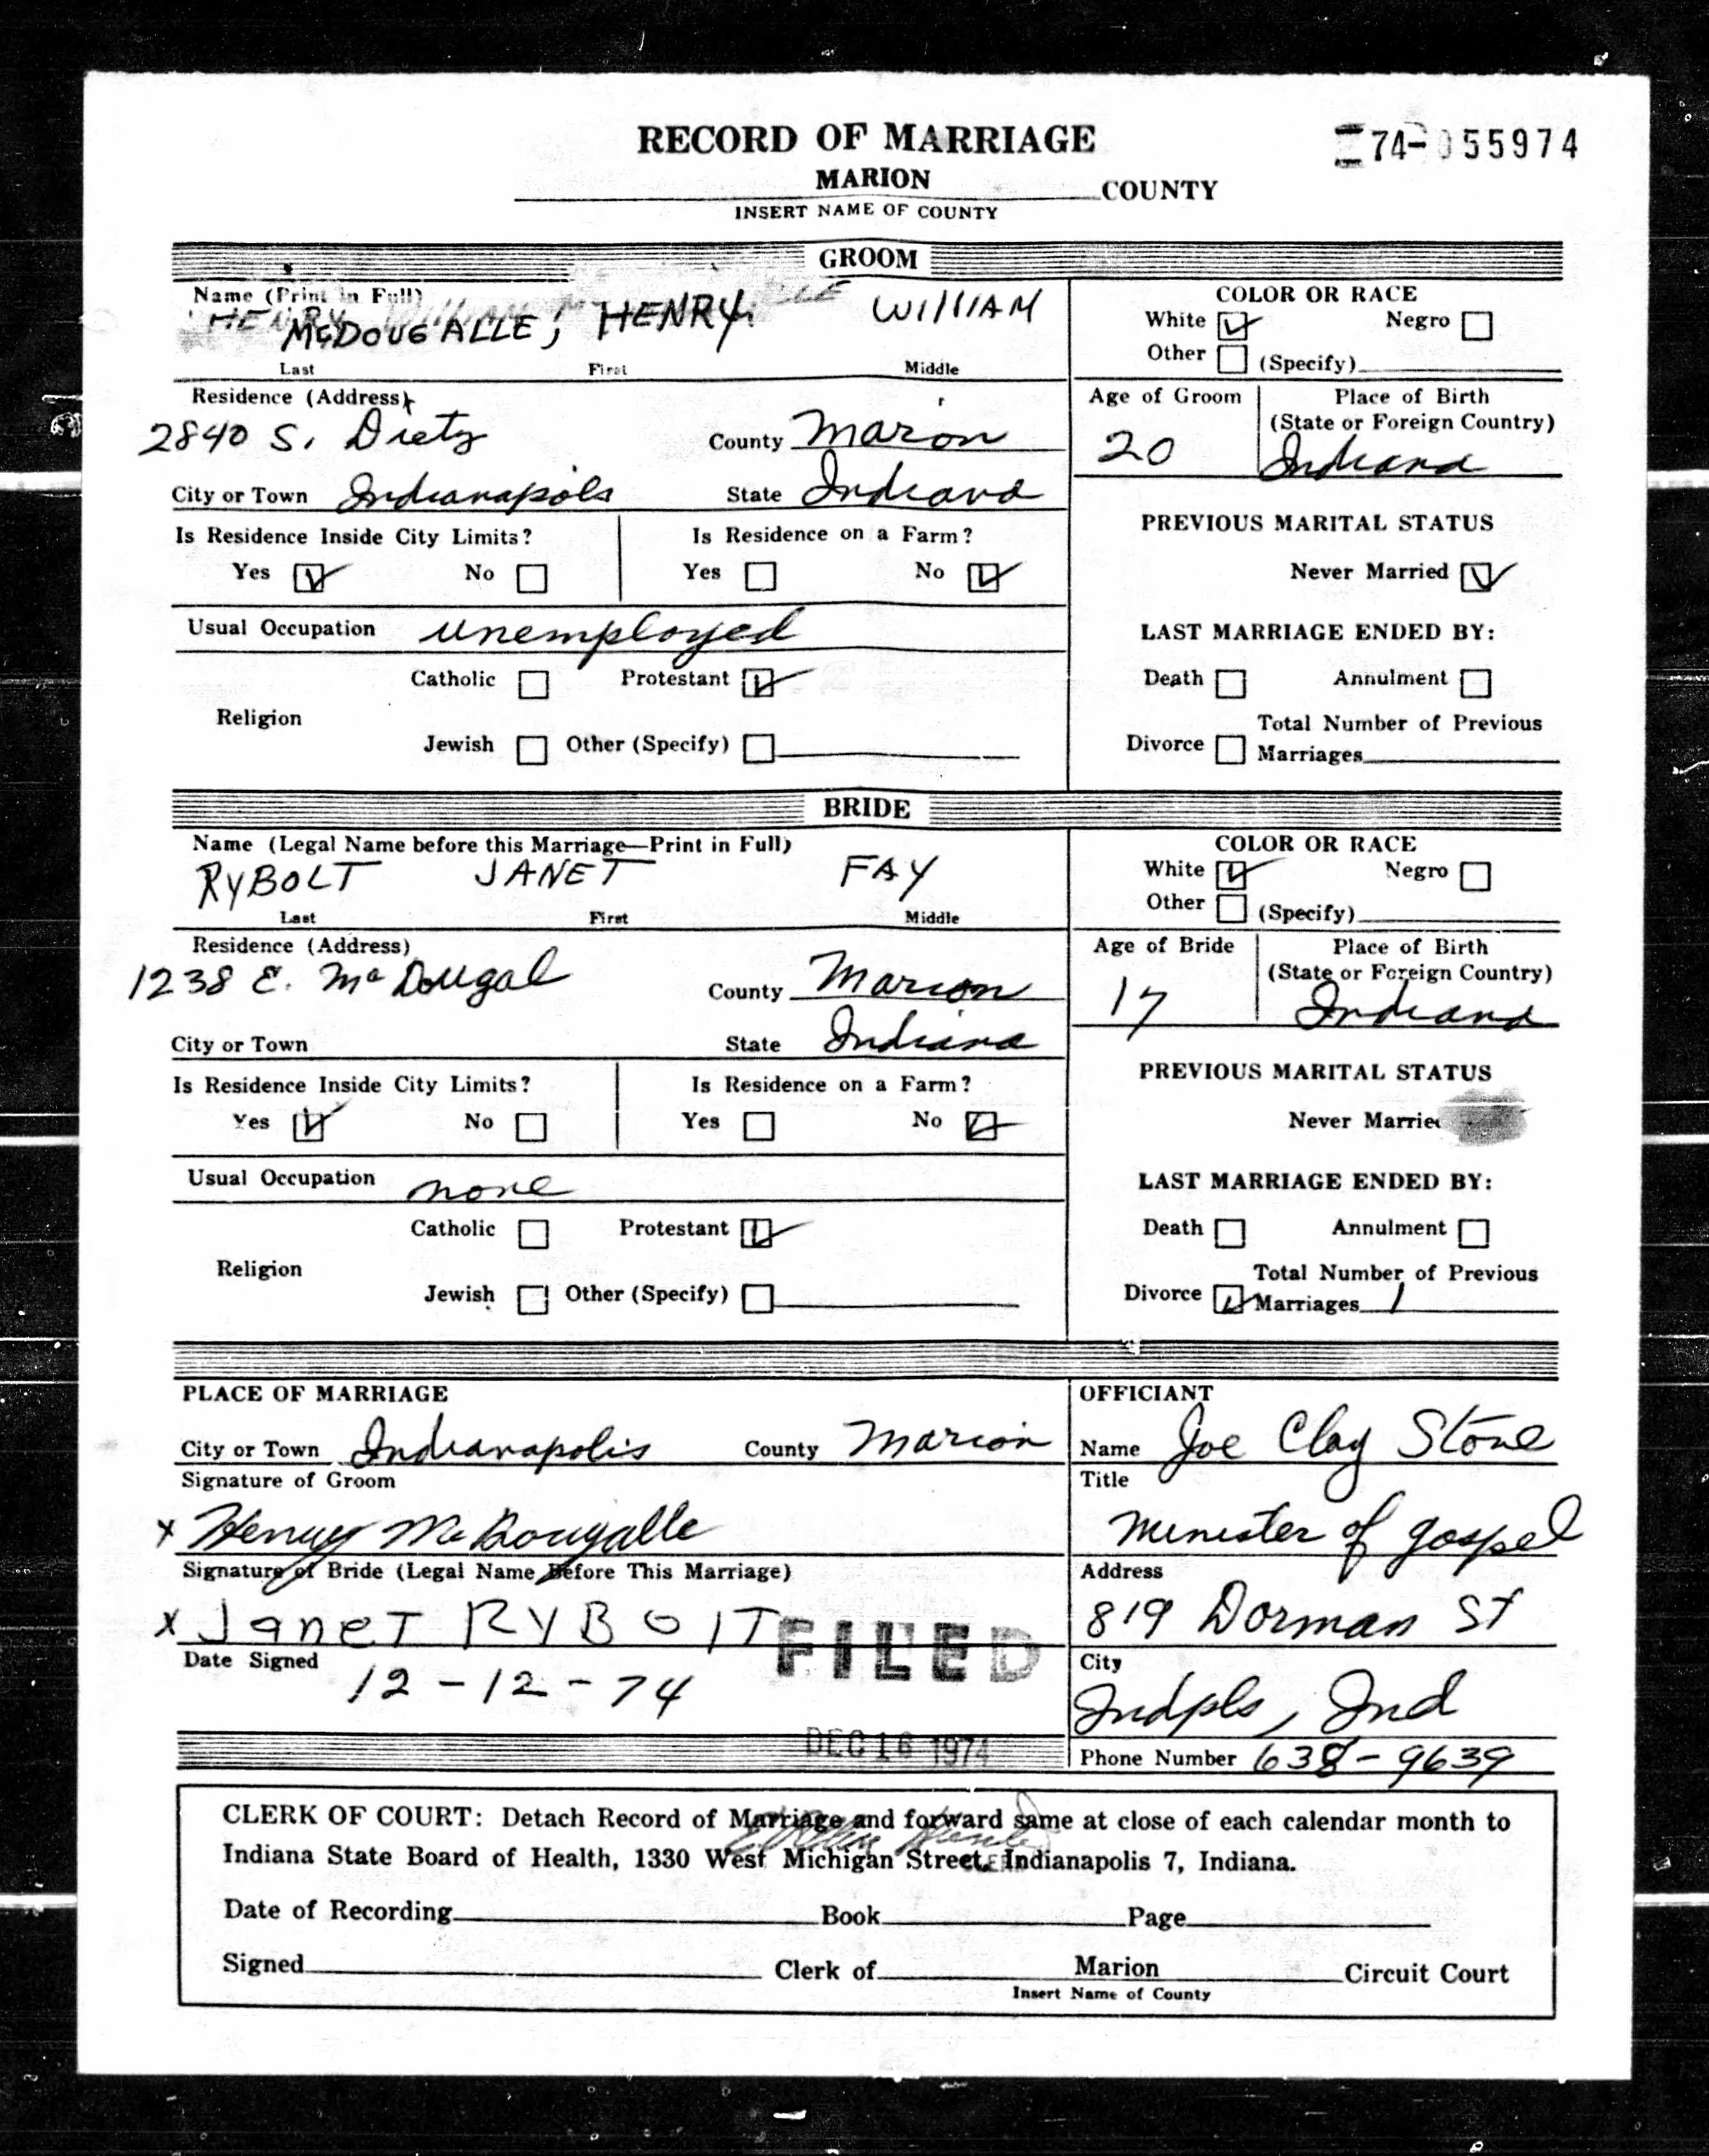 RECORD OF MARRIAGE
74-055974
MARION COUNTY
INSERT NAME OF COUNTY
GROOM
Name (Print in Full)
McDOUGALLE, HENRY WIllIAM
Last First Middle
COLOR OR RACE
White Negro
Other (Specify)
Residence (Address)
2840 S. Dietz County Maron
City or Town Indianapols State Indiana
Age of Groom
20
Place of Birth
(State or Foreign Country)
Indiana
Is Residence Inside City Limits?
Yes No
Is Residence on a Farm?
Yes No
PREVIOUS MARITAL STATUS
Never Married
Usual Occupation unemployed
LAST MARRIAGE ENDED BY:
Religion
Catholic Protestant
Jewish Other (Specify)
Death Annulment
Divorce Total Number of Previous
Marriages
BRIDE
Name (Legal Name before this Marriage—Print in Full)
RYBOLT JANET FAY
Last First Middle
COLOR OR RACE
White Negro
Other (Specify)
Residence (Address)
1238 E. McDougal County Marion
City or Town State Indiana
Age of Bride
17
Place of Birth
(State or Foreign Country)
Indiana
Is Residence Inside City Limits?
Yes No
Is Residence on a Farm?
Yes No
PREVIOUS MARITAL STATUS
Never Married
Usual Occupation none
LAST MARRIAGE ENDED BY:
Religion
Catholic Protestant
Jewish Other (Specify)
Death Annulment
Divorce Total Number of Previous
Marriages 1
PLACE OF MARRIAGE
City or Town Indianapolis County Marion
Signature of Groom
x Henry McDougalle
Signature of Bride (Legal Name Before This Marriage)
x Janet RYBOlT
Date Signed
12-12-74
FILED
DEC 16 1974
OFFICIANT
Name Joe Clay Stone
Title
Minister of gospel
Address
819 Dorman St
City
Indpls, Ind
Phone Number 638-9639
CLERK OF COURT: Detach Record of Marriage and forward same at close of each calendar month to
Indiana State Board of Health, 1330 West Michigan Street, Indianapolis 7, Indiana.
Date of Recording Book Page
Signed Clerk of Marion Circuit Court
Insert Name of County